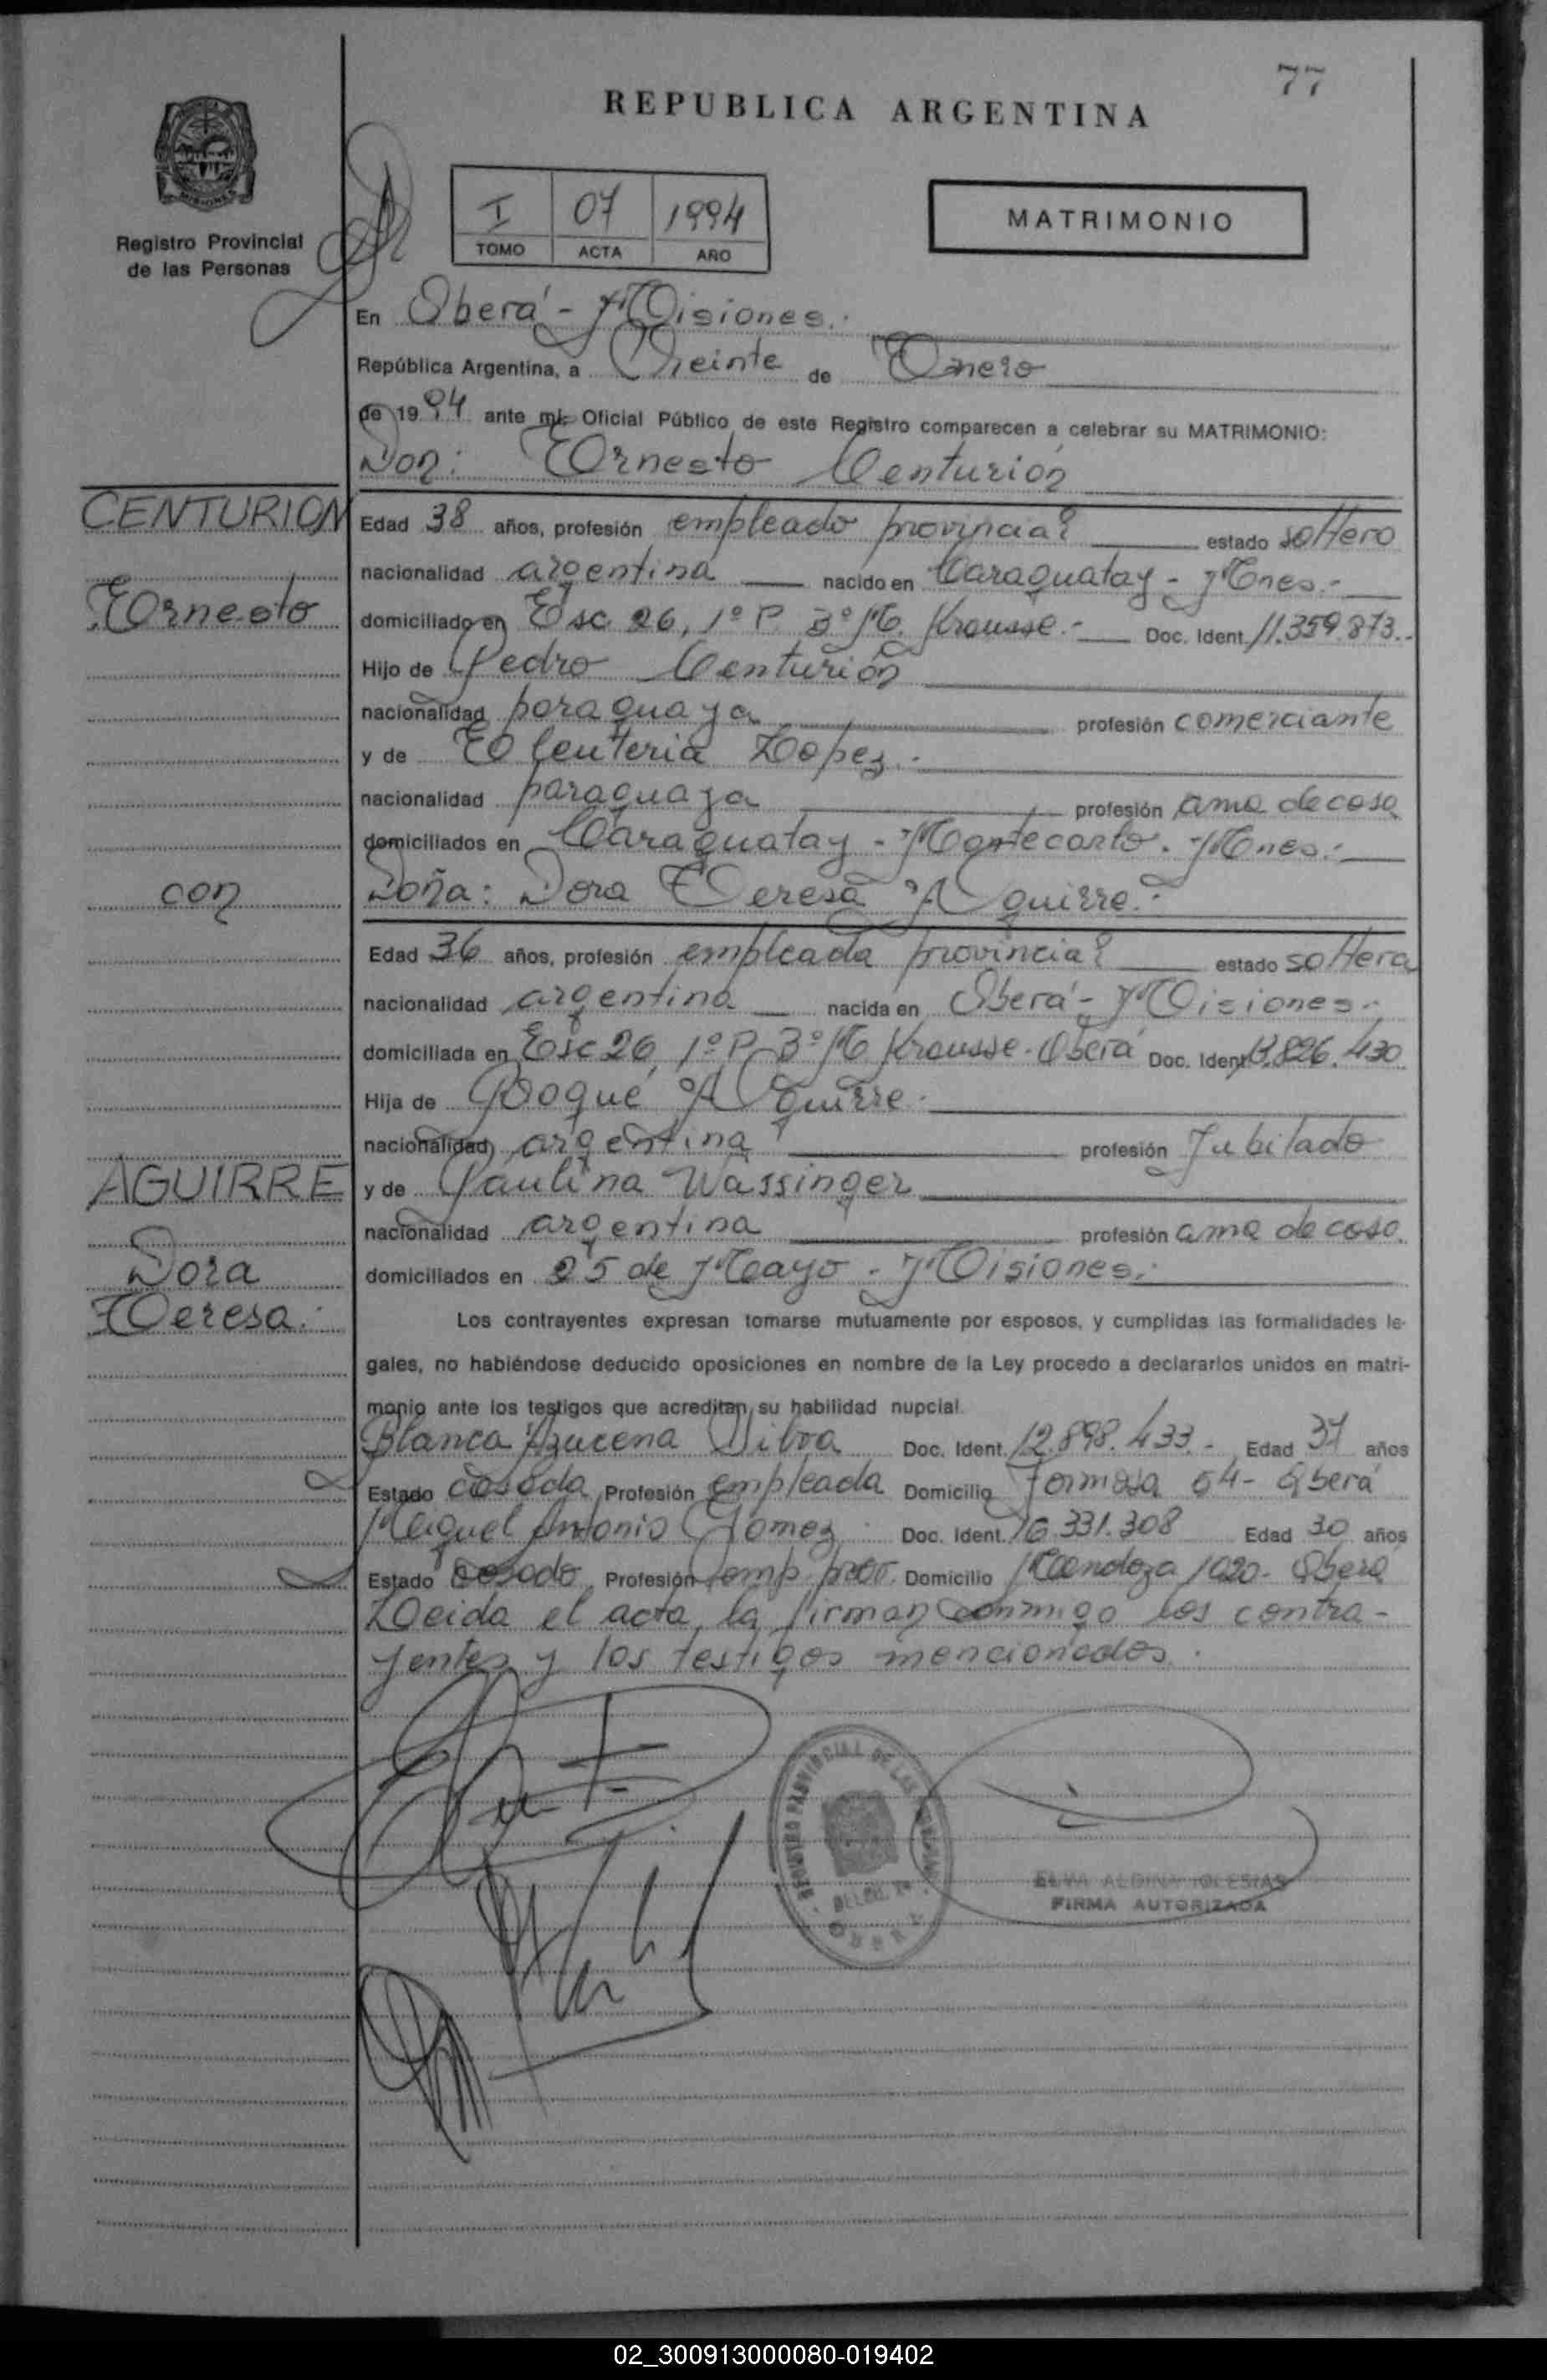 77
REPUBLICA ARGENTINA
MISIONES
Registro Provincial
de las Personas
I 07 1994
TOMO ACTA AÑO
MATRIMONIO
En Oberá - Misiones.
República Argentina, a Veinte de Enero
de 19 94 ante mí: Oficial Público de este Registro comparecen a celebrar su MATRIMONIO:
Don: Ernesto Centurión
CENTURION
Ernesto
Edad 38 años, profesión empleado provincial estado soltero
nacionalidad argentina nacido en Caraguatay - Mnes.-
domiciliado en Esc. 26, 1º P. 3º M. Krausse.- Doc. Ident. 11.359.873.-
Hijo de Pedro Centurión
nacionalidad paraguaya profesión comerciante
y de Eleuteria Lopez.-
nacionalidad paraguaya profesión ama de casa
domiciliados en Caraguatay - Montecarlo. Mnes.-
con
Doña: Dora Teresa Aguirre.-
Edad 36 años, profesión empleada provincial estado soltera
nacionalidad argentina nacida en Oberá - Misiones.-
domiciliada en Esc 26, 1º P. 3º M. Krausse - Oberá Doc. Ident. 13.826.430
Hija de Roque Aguirre.
nacionalidad argentina profesión Jubilado
AGUIRRE
Dora
Teresa.-
y de Paulina Wassinger
nacionalidad argentina profesión ama de casa.
domiciliados en 25 de Mayo - Misiones.-
Los contrayentes expresan tomarse mutuamente por esposos, y cumplidas las formalidades le-
gales, no habiéndose deducido oposiciones en nombre de la Ley procedo a declararlos unidos en matri-
monio ante los testigos que acreditan su habilidad nupcial.
Blanca Azucena Silva Doc. Ident. 12.898.433.- Edad 37 años
Estado casada Profesión empleada Domicilio Formosa 64 - Oberá
Miguel Antonio Gomez Doc. Ident. 16.331.308 Edad 30 años
Estado Casado Profesión emp. prov. Domicilio Mendoza 1020 - Oberá
Leida el acta, la firman conmigo los contra-
yentes y los testigos mencionados.
REGISTRO PROVINCIAL DE LAS PERSONAS
OBERA
ELVA ALDINA IGLESIAS
FIRMA AUTORIZADA
02_300913000080-019402